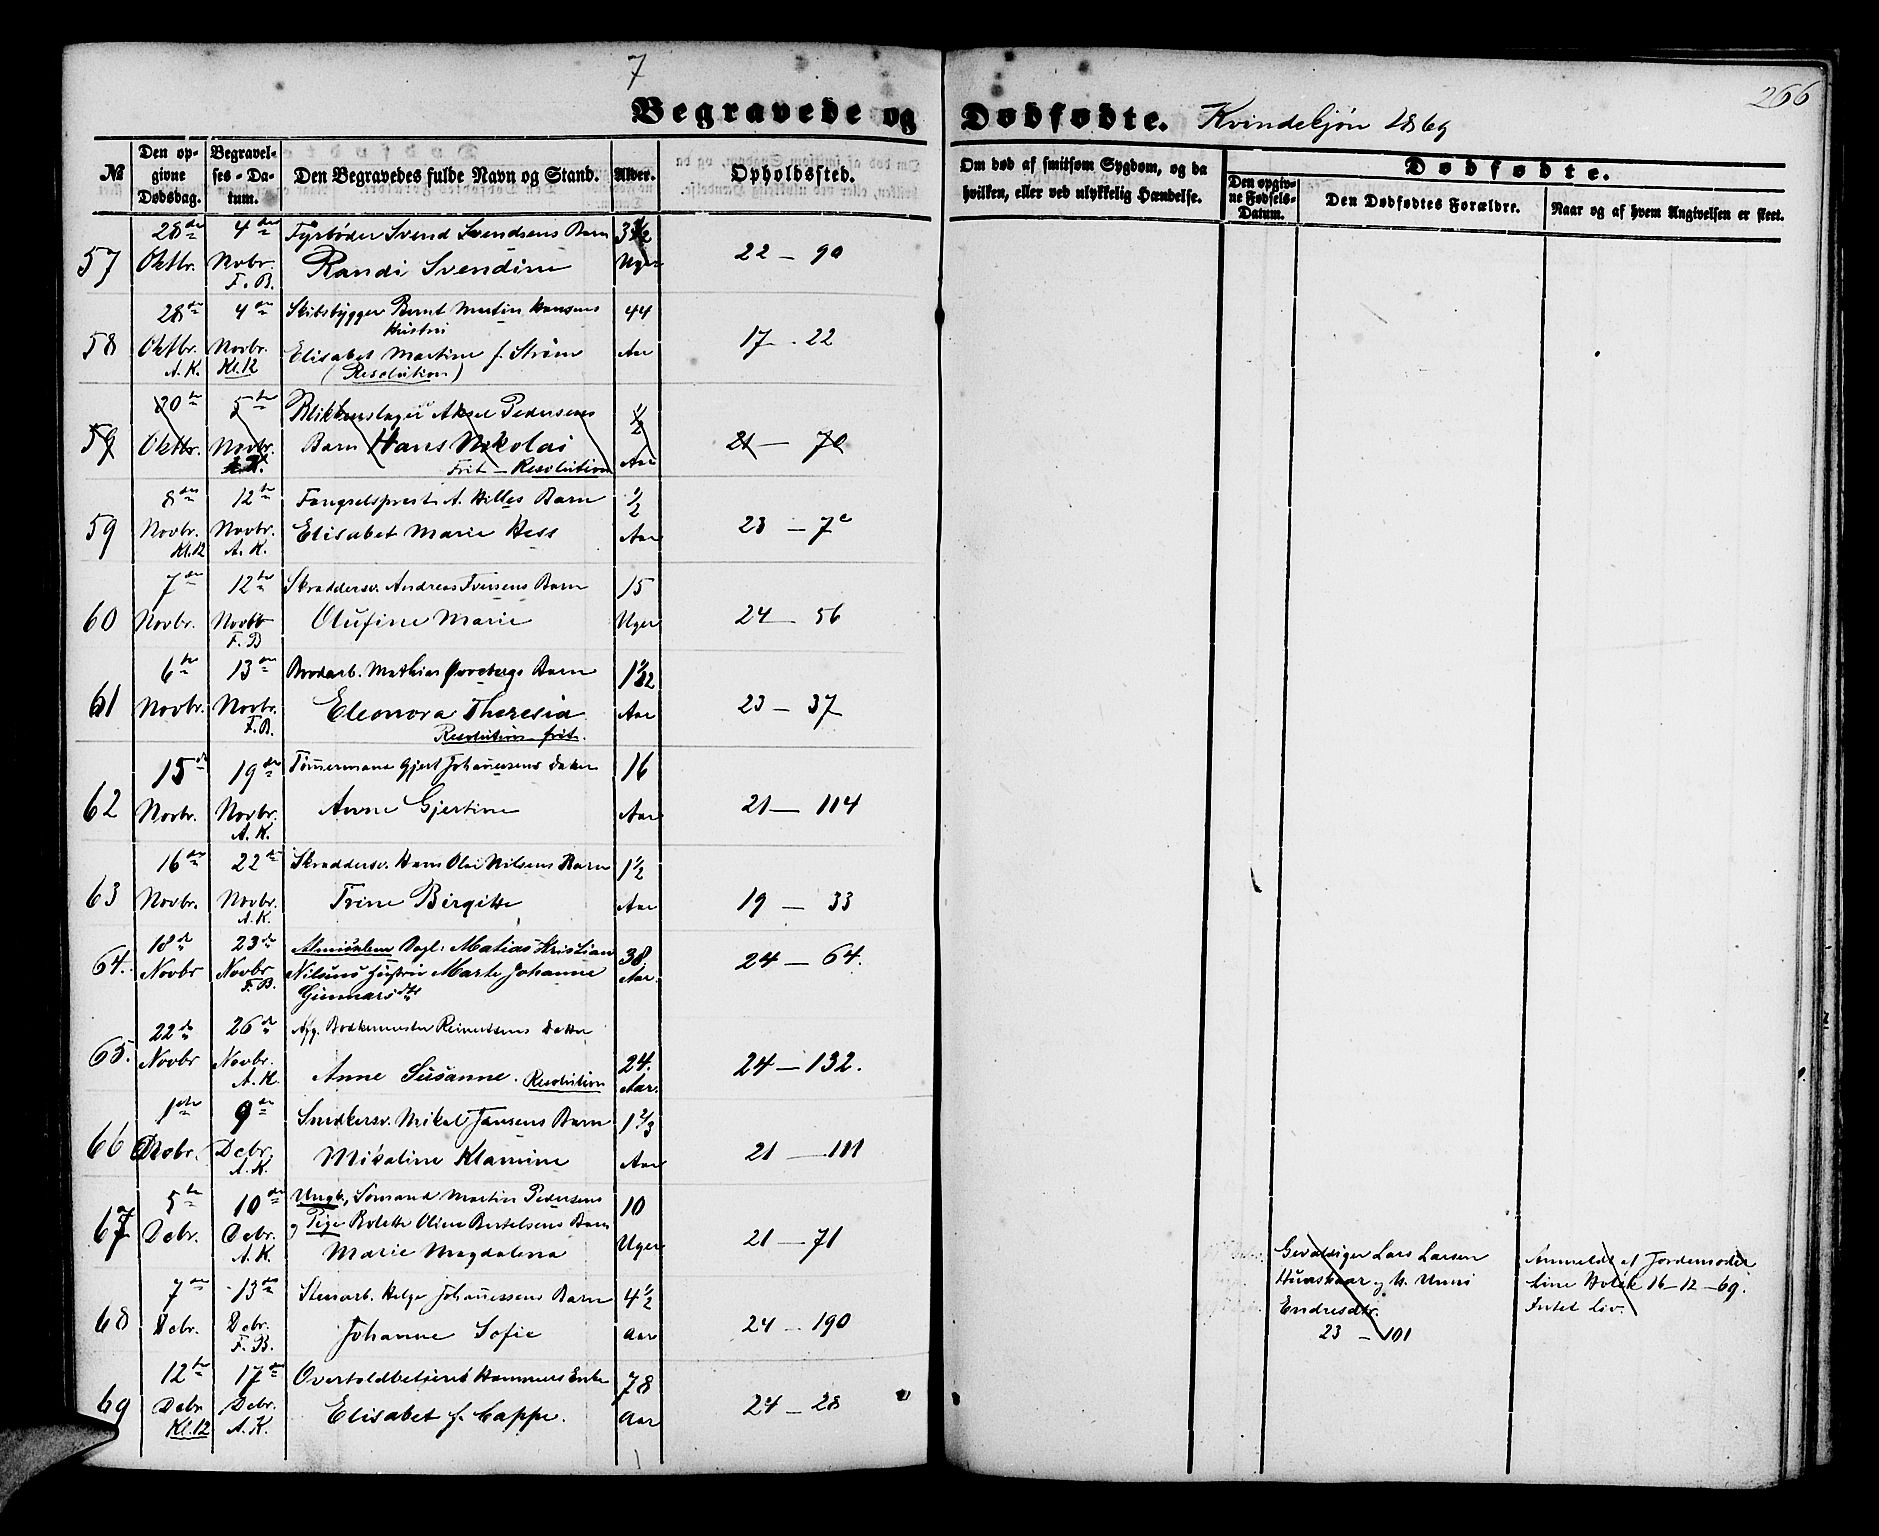 7
266
Begravede og Dødfødte. Kvindekjøn 1869
№
Den op-
givne
Dødsdag.
Begravel-
ses-Da-
tum.
Den Begravedes fulde Navn og Stand.
Alder.
Opholdssted.
Om død af smitsom Sygdom, og da
hvilken, eller ved ulykkelig Hændelse.
Dødfødte.
Den opgiv-
ne Fødsels-
Datum.
Den Dødfødtes Forældre.
Naar og af hvem Angivelsen er skeet.
28de 4de Fyrbøder Svend Svendsens Barn 3½
57 Oktbr. Novbr. Randi Svendine Uger 22 – 90
F. B.
28de 4de Skibsbygger Bernt Martin Hansens 44
Hustru
58 Oktbr. Novbr. Elisabet Martine f. Strøm Aar 17 – 22
A. K. Kl. 12 (Resolution)
30te 5te Blikkenslager Aksel Pedersens ½
59 Oktbr. Novbr. Barn Hans Nikolai Aar 21 – 70
Frit – Resolution
8de 12te Fængselsprest A. Hilles Barn ½
59 Novbr. Novbr. Elisabet Marie Hess Aar 23 – 7c
Kl. 12 A. K.
7de 12te Skræddersv. Andreas Iversens Barn 15
60 Novbr. Novbr. Olufine Marie Uger 24 – 56
F. B
6te 13de Brodarb. Mathias Barn 1½
61 Novbr. Novbr. Eleonora Theresia Aar 23 – 37
F. B. Resolution frit.
15de 19de Tømmermand Gjert Johannesens Datter 16
62 Novbr. Novbr. Anne Gjertine Aar 21 – 114
A. K.
16de 22de Skræddersv. Hans Olai Nilsens Barn 1½
63 Novbr. Novbr. Trine Birgitte Aar 19 – 33
A. K.
18de 23de Almisselem Dagl: Matias Kristian 38
64. Novbr Novbr Nilsens hustru Marte Johanne Aar. 24 – 64.
F. B. Gunnarsdtr
22de 26de Afg. Bødkermester Reimertsens Datter
65. Novbr Novbr. Anne Susanne. Resolution 24. Aar. 24 – 132.
A. K.
1ste 9de Snedkersv. Mikal Jansens Barn 1⅔
66 Decbr. Debr. Mikaline Klamine Aar 21 – 111
A. K.
5te 10de Ungk. Sømand Martin Pedersens 10
67 Debr. Debr. og Pige Bolette Oline Bertelsens Barn
A. K. Marie Magdalena Uger 21 – 71
7de 13de Stenarb. Helge Johannessens Barn 4½
68 Debr. Debr. Johanne Sofie Aar 24 – 190
F. B.
12te 17de Overtoldbetjent Hammers Enke 78
69 Debr Debr. Elisabet f. Cappe. Aar 24 – 28
Kl. 12 A. K.
Gevaldiger Lars Larsen
og H. Unni
Endresdtr.
23 – 101
Anmeldt af Jordemoder
Line Holck 16-12-69.
Intet Liv.